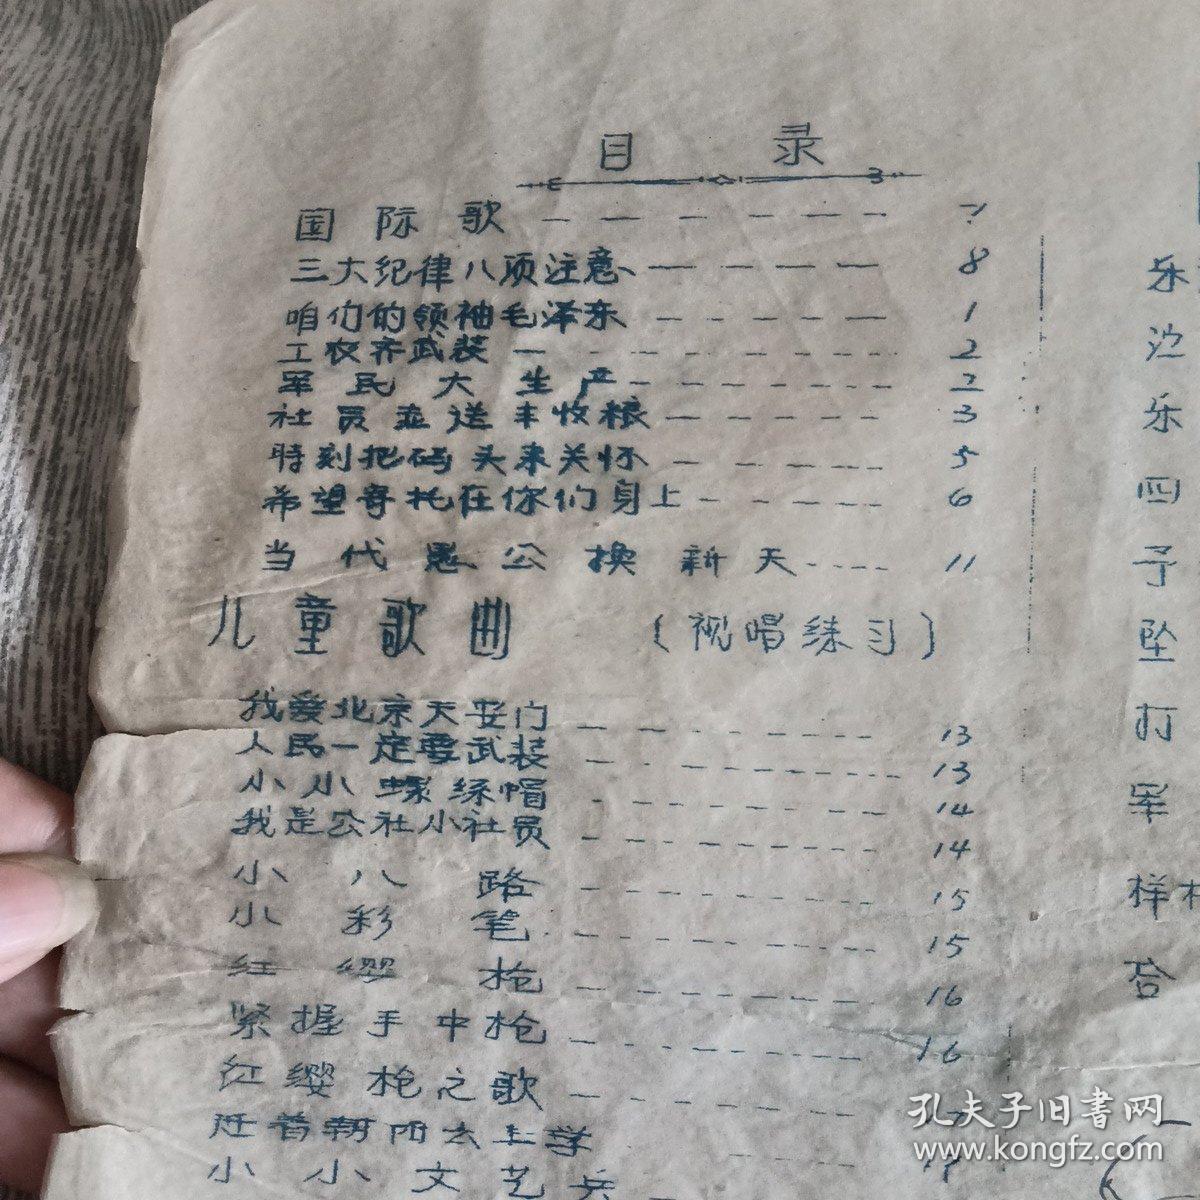 目 录
国际歌 — — — — — — 7
三大纪律八项注意 — — — — — 8
咱们的领袖毛泽东 — - - - — — 1
工农齐武装 — - - - - - - - 2
军民大生产 - - - - - - - 2
社员喜送丰收粮 - - - - - - 3
時刻把码头来关怀 — - - — — 5
希望寄托在你们身上 - - - - - - 6
当代愚公换新天 - - - - 11
儿童歌曲 (视唱练习)
我爱北京天安门 — — - - - — — 13
人民一定要武装 - - - - - - - - 13
小小螺丝帽 - - - - - - - 14
我是公社小社员 - - - - - - - 14
小八路 - - - - - - - - 15
小彩笔 - - - - - - - - 15
红缨枪 - - - - - - - - 16
紧握手中枪 - - - - - - - - 16
红缨枪之歌 - - - - - - - -
迎着朝阳去上学 - - - - 17
小小文艺兵
乐
边
乐
四
予
坠
打
军
样
孔夫子旧書网
www.kongfz.com